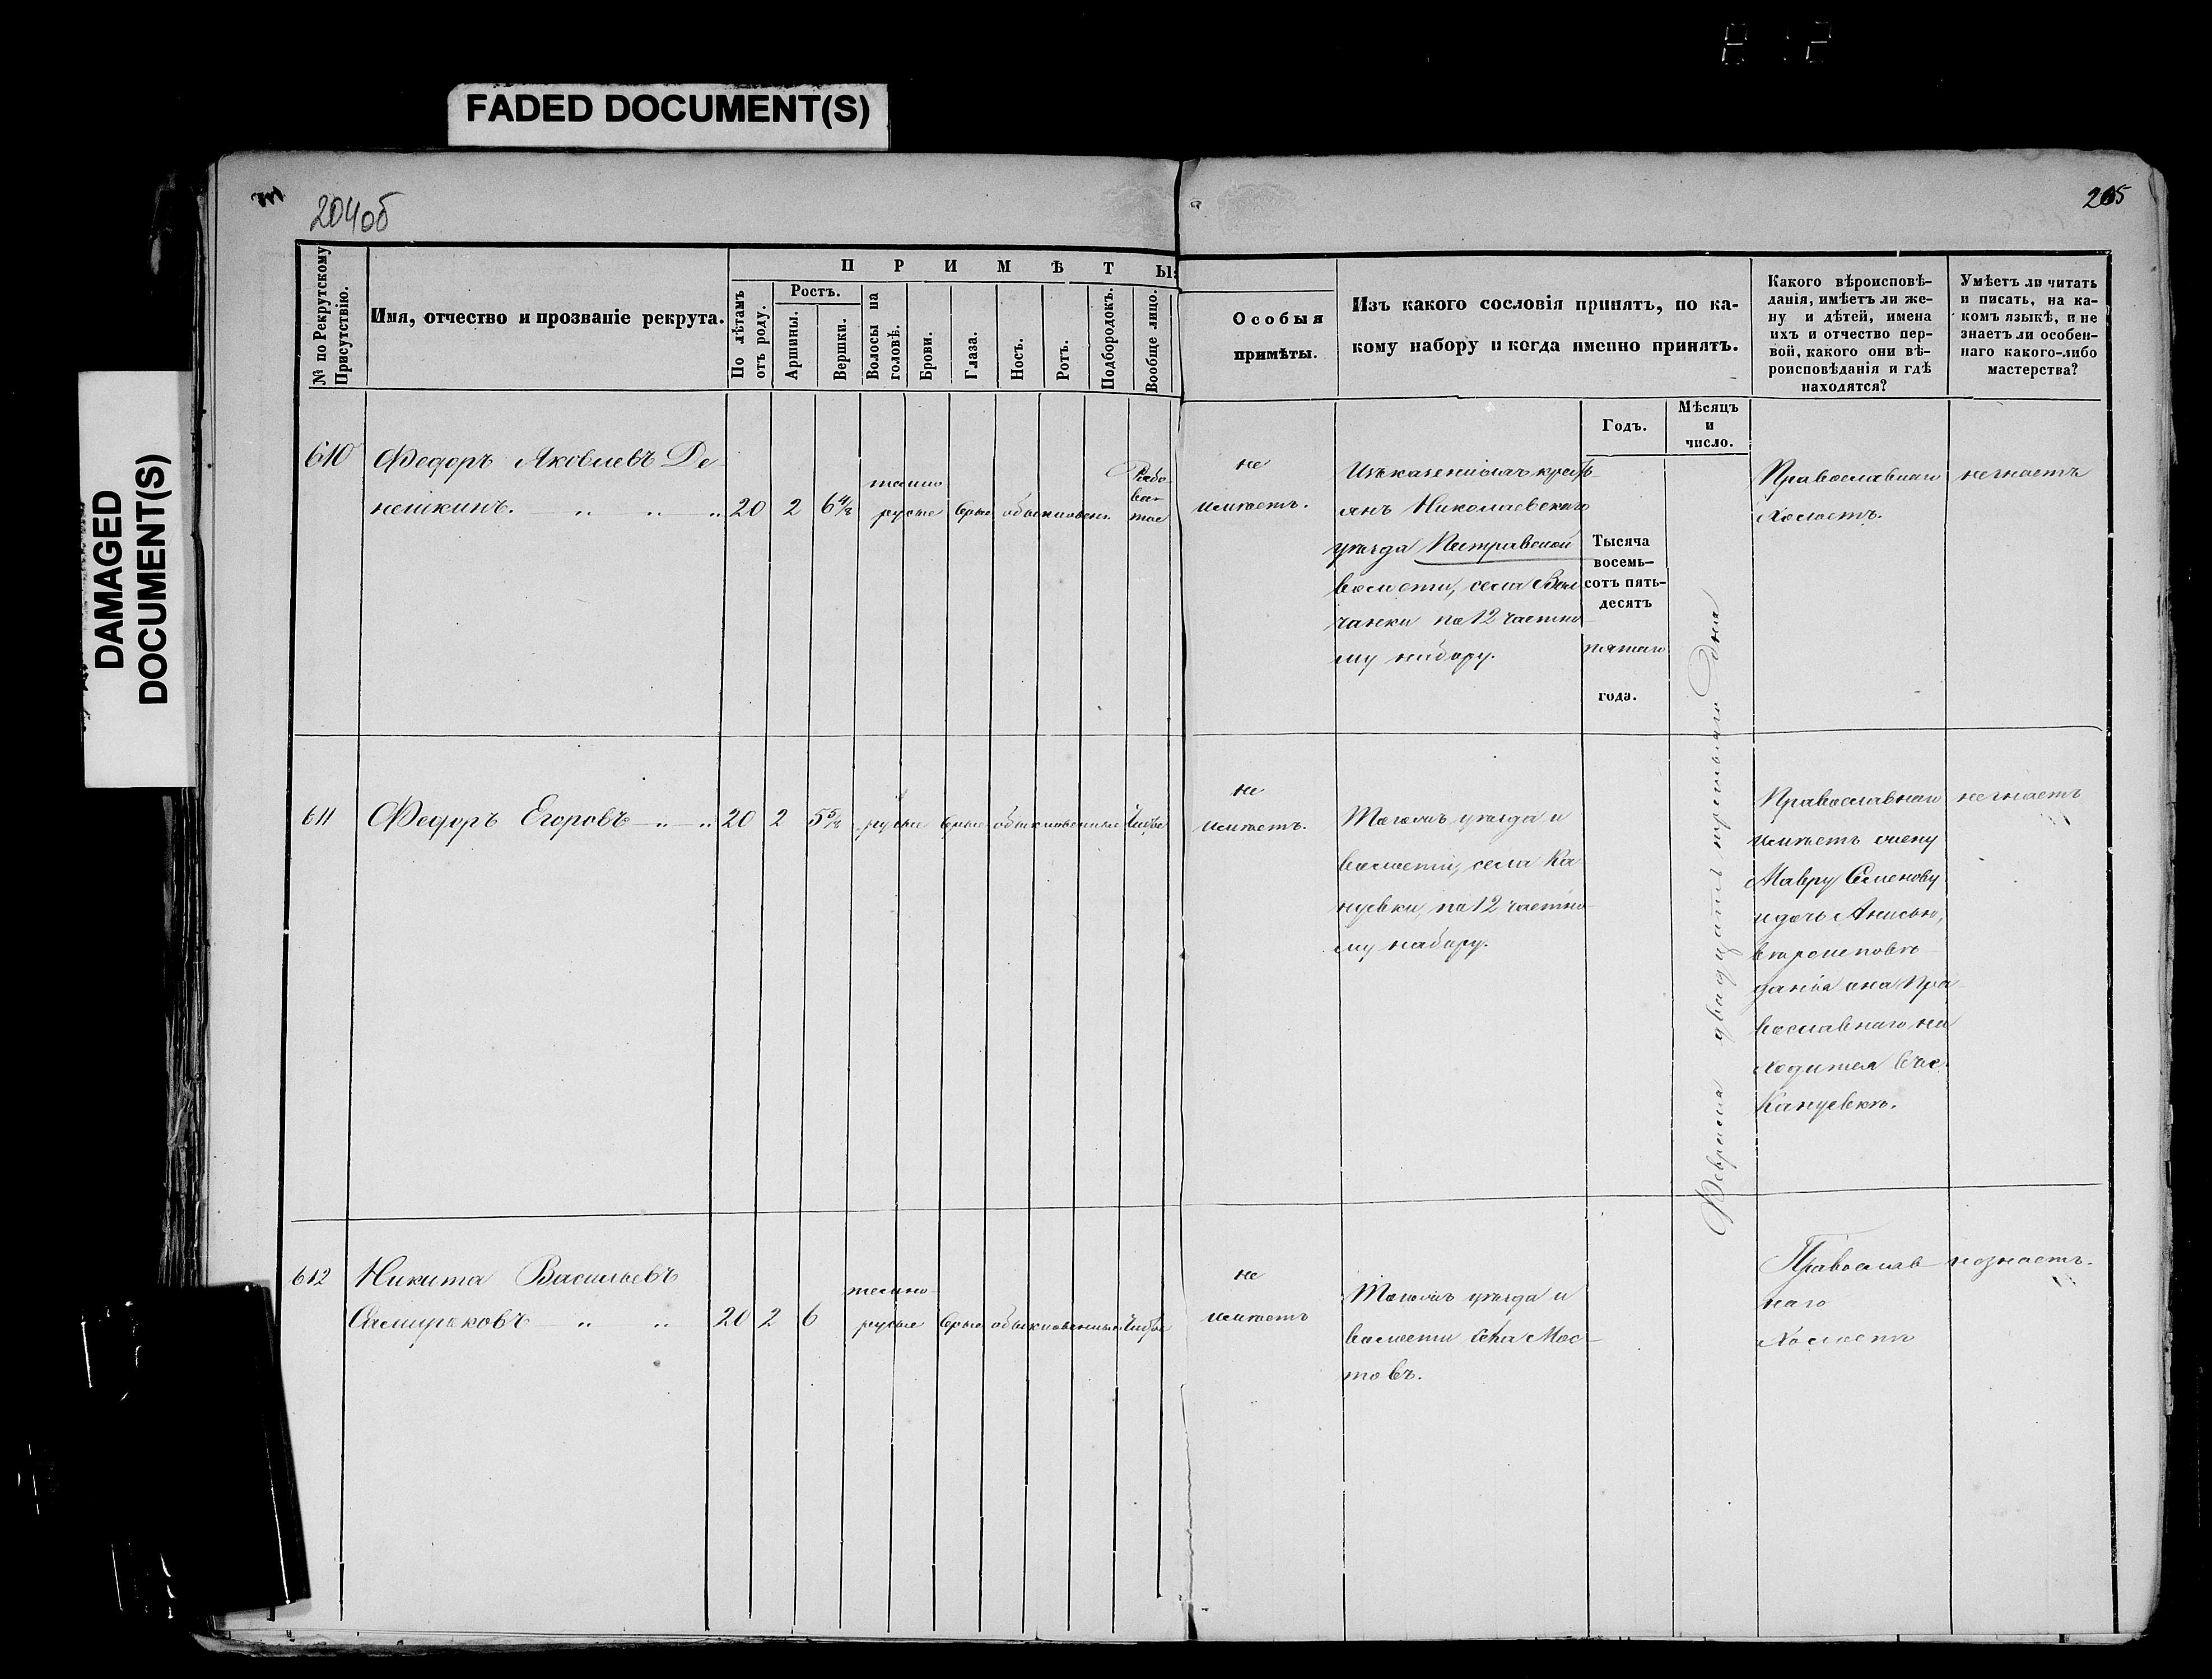 FADED DOCUMENT(S)
DAMAGED
DOCUMENT(S)
204об
205
№ по Рекрутскому
Присутствію.
Имя, отчество и прозваніе рекрута.
ПРИМѢТЫ:
По лѣтамъ
отъ роду.
Ростъ.
Аршины.
Вершки.
Волосы на
головѣ.
Брови.
Глаза.
Носъ.
Ротъ.
Подбородокъ.
Вообще лицо.
Особыя
примѣты.
Изъ какого сословія принятъ, по ка-
кому набору и когда именно принятъ.
Годъ.
Мѣсяцъ
и
число.
Какого вѣроисповѣ-
данія, имѣетъ ли же-
ну и дѣтей, имена
ихъ и отчество пер-
вой, какого они вѣ-
роисповѣданія и гдѣ
находятся?
Умѣетъ ли читать
и писать, на ка-
комъ языкѣ, и не
знаетъ ли особен-
наго какого-либо
мастерства?
610
Федоръ Яковлевъ Де-
нешкинъ. „ „ „
20
2
6 4/8
темно
русые
сѣрые
обыкновен.
Рябо-
ва-
тое
не
имѣетъ.
Изъ казенныхъ кресть-
янъ Николаевскаго
уѣзда Пестравской
волости, села Вол
чанки по 12 частно-
му набору.
Тысяча
восемь-
сотъ пять-
десятъ
пятаго
года.
Февраля двадцать третьяго дня
Православнаго
Холостъ.
незнаетъ
611
Федоръ Егоровъ „ „
20
2
5 5/8
русые
сѣрые
обыкновенные
чистое
не
имѣетъ.
Тогожъ уѣзда и
волости, села Ка
нуевки, по 12 частно-
му набору.
Православнаго
имѣетъ жену
Мавру Семенову
и дочь Анисью,
вѣроисповѣ-
данія она Пра-
вославнаго на
ходится въ с.
Кануевкѣ.
незнаетъ
612
Никита Васильевъ
20
2
6
темно-
русые
сѣрые
обыкновенные
чистое
не
имѣетъ
Тогожъ уѣзда и
волости села Мос-
товъ.
Православ
наго
Холостъ
незнаетъ.